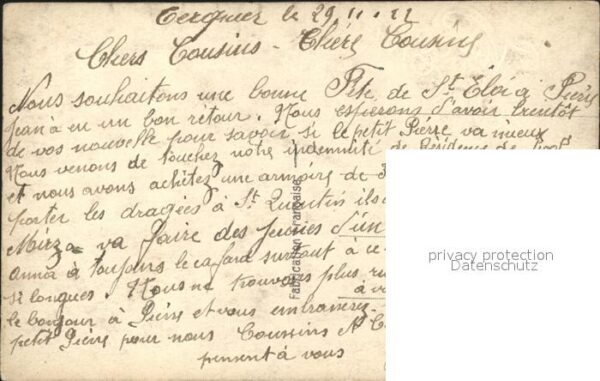 Tergnier le 29.11.22
Chers Cousins - Chère Cousine
Nous souhaitons une bonne Fête de St Eloi à Pierre
Jean à eu un bon retour. Nous espérons d'avoir bientôt
de vos nouvelle pour savoir si le petit Pierre va mieux
Nous venons de touchez notre indemnité de Résidence de
et nous avons achétez une armoire de
porter les dragées à St Quentin ils
Mirza va faire des jeunes d'un
anna a toujours le cafard surtout à ce
si longues. Nous ne trouvons plus
le bonjour à Pierre et vous embrasserez
petit Pierre pour nous Coussins
pensent à vous
Fabrication Française
privacy protection
Datenschutz